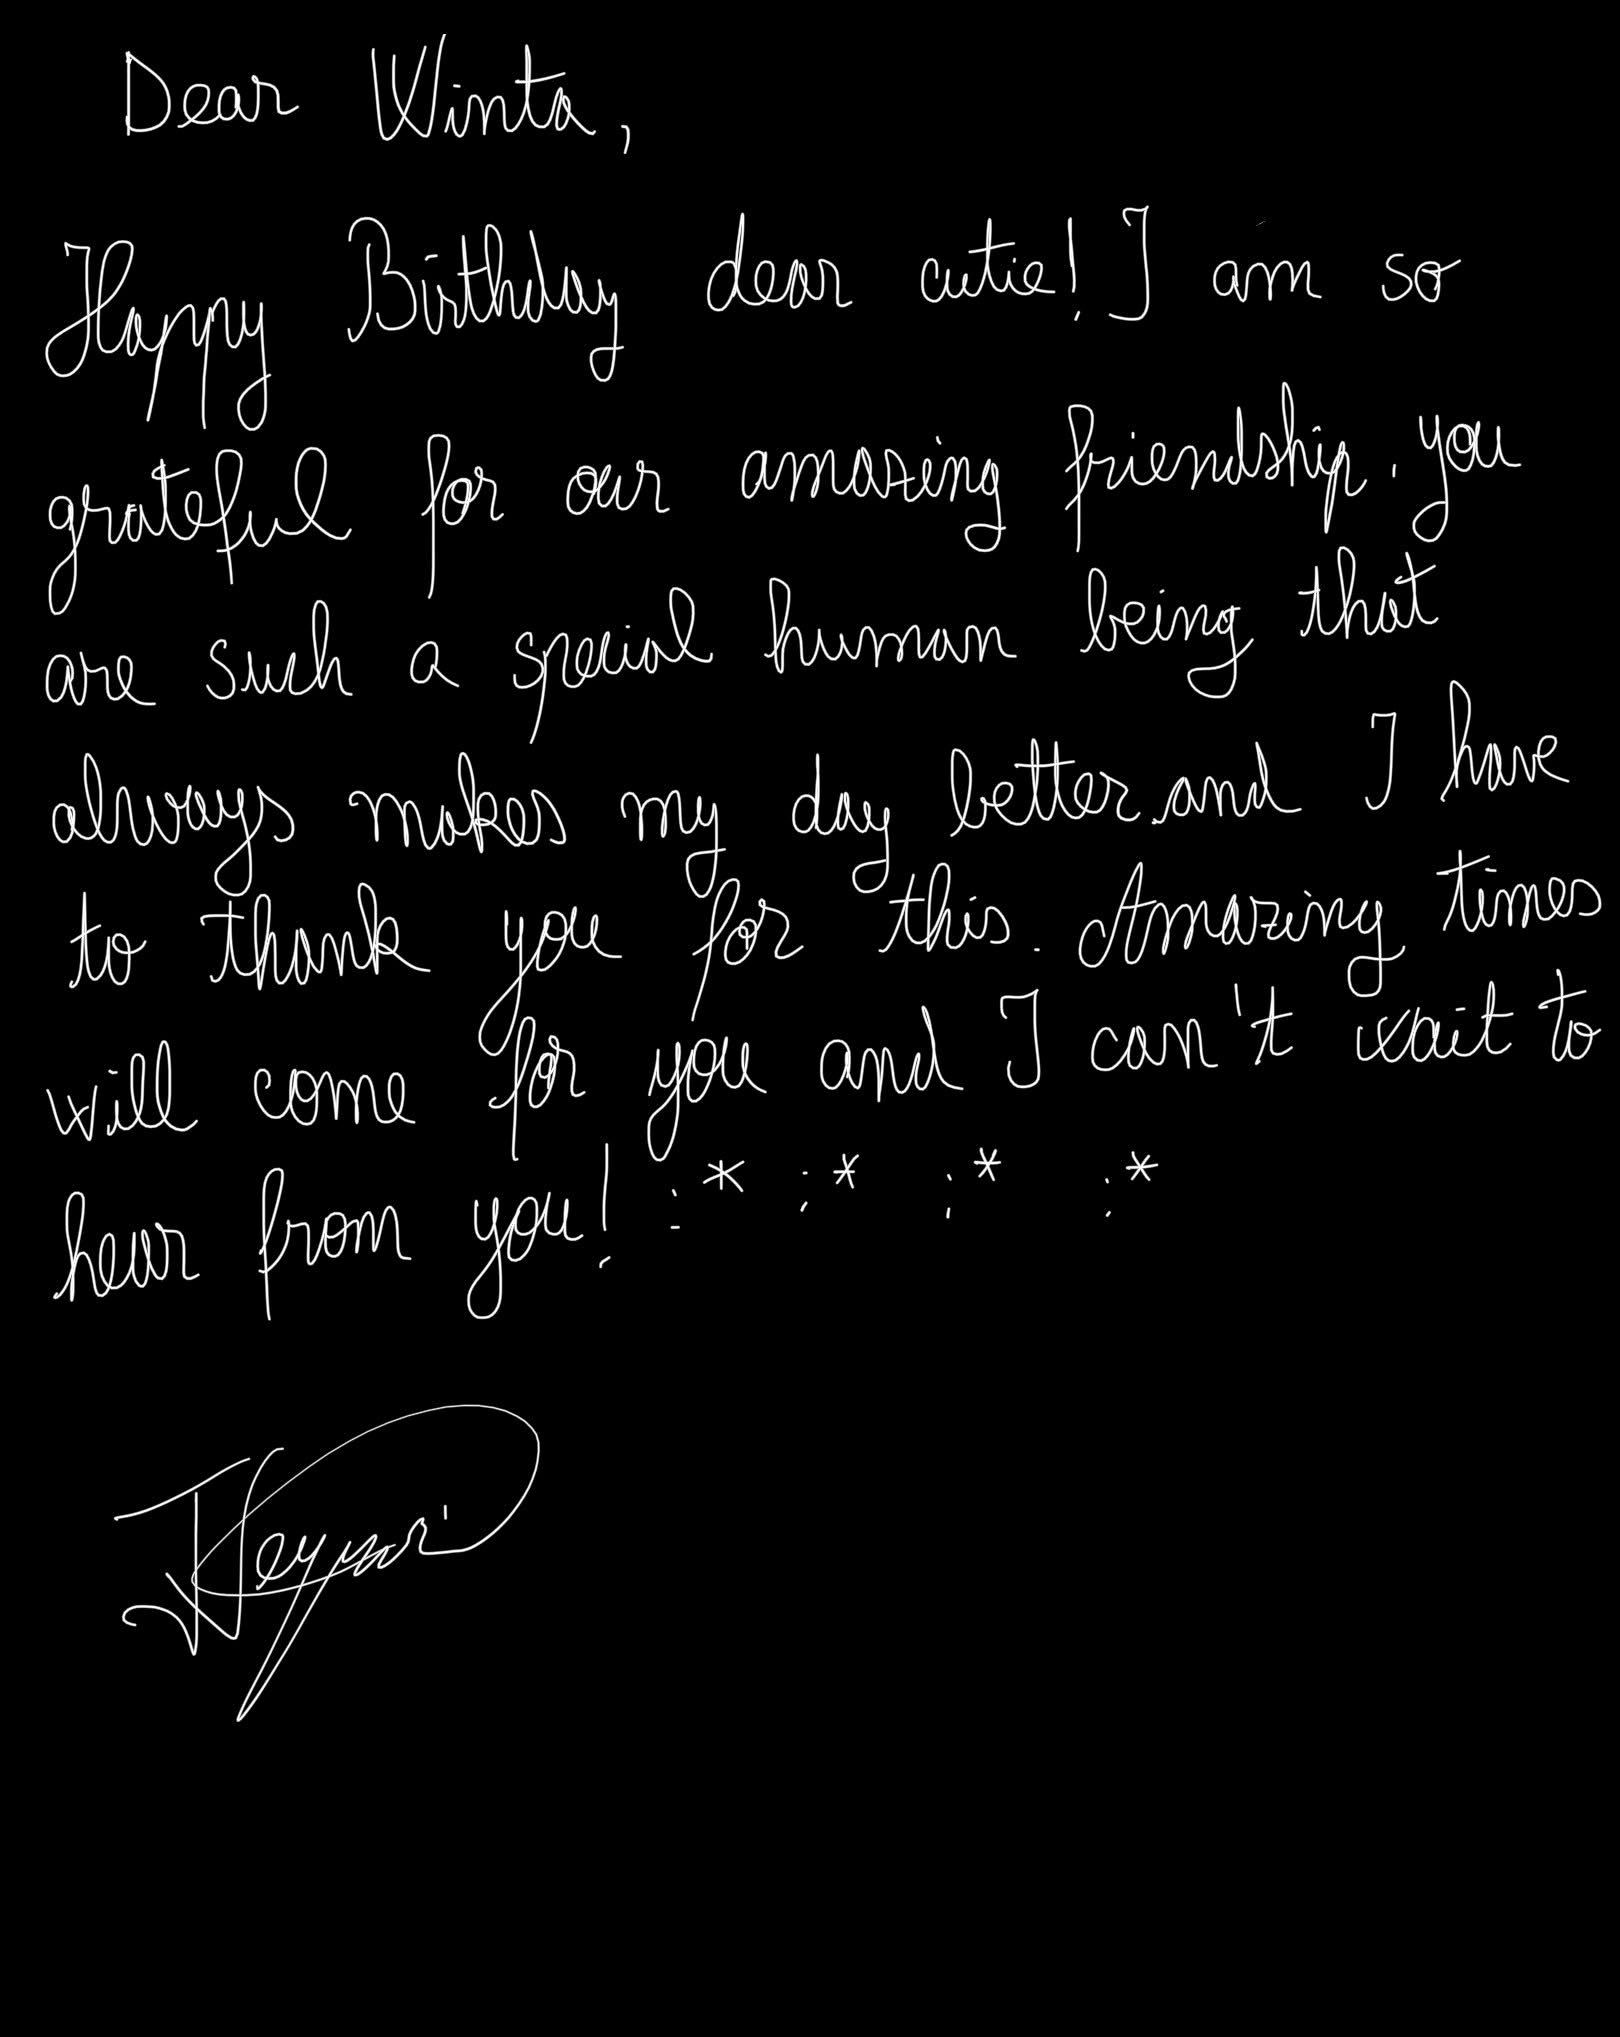 Dear Winta,
Happy Birthday dear cutie! I am so
grateful for our amazing friendship. you
are such a special human being that
always makes my day better and I have
to thank you for this. Amazing times
will come for you and I can't wait to
hear from you! :* :* :* :*